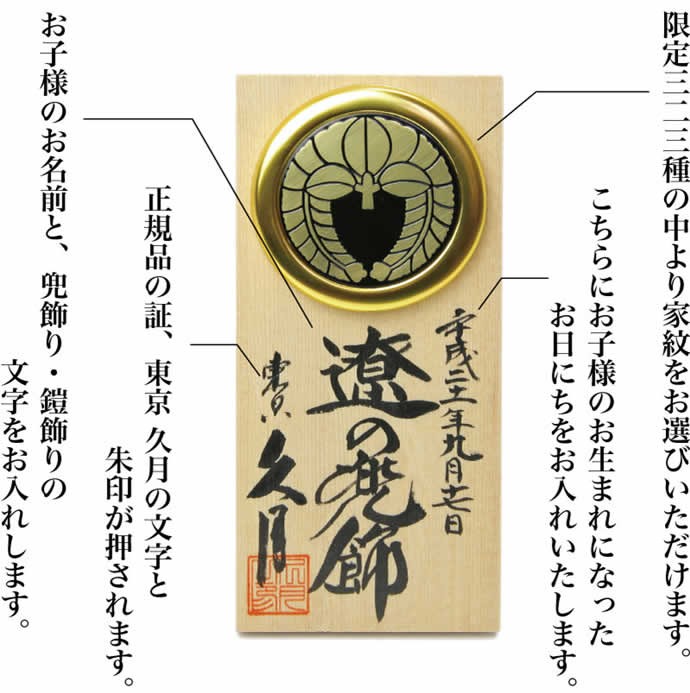 限定三二三種の中より家紋をお選びいただけます。
こちらにお子様のお生まれになった
お日にちをお入れいたします。
平成二十一年九月十七日
遼の兜飾
東京
久月
正規品の証、東京 久月の文字と
朱印が押されます。
お子様のお名前と、兜飾り・鎧飾りの
文字をお入れします。